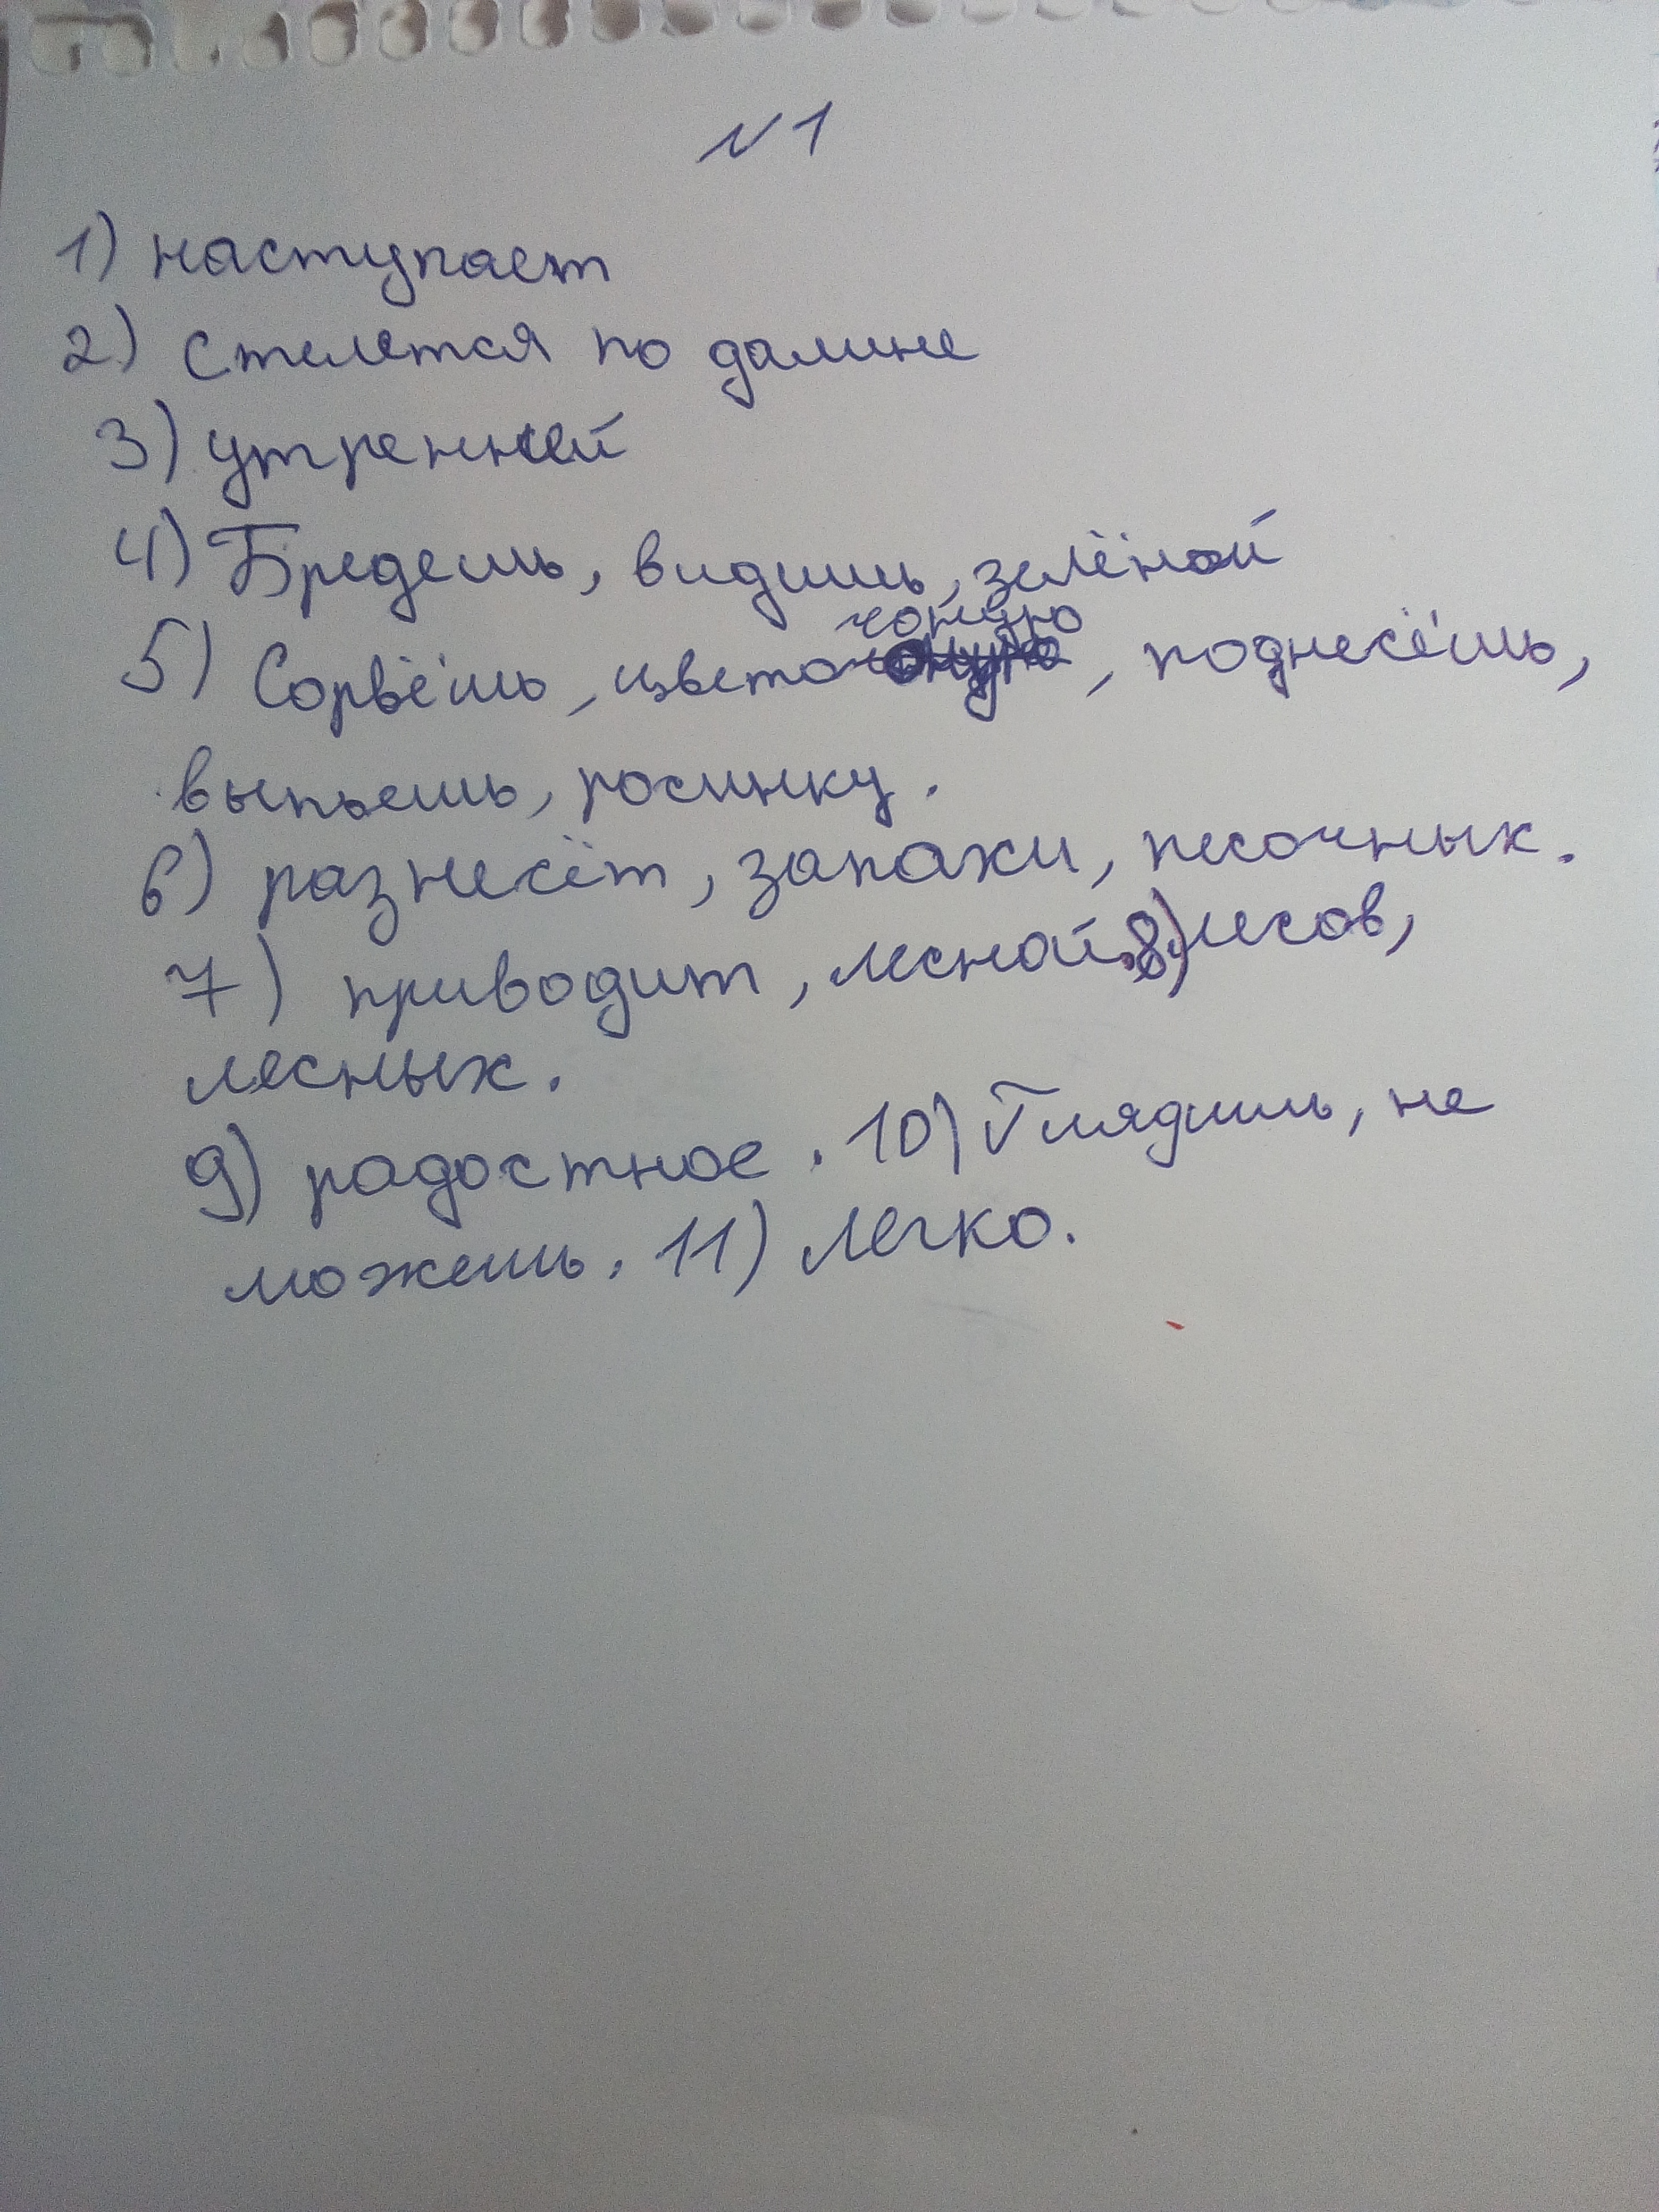 №1
1) наступает
2) Стелется по долине
3) утренней
4) Бредешь, видишь, зелёной
чоную
5) Сорвёшь, цвето, поднесёшь,
выпьешь, росинку.
6) разнесёт, запахи, песочных.
7) приводит, лесной. 8) лесов,
лесных.
9) радостное. 10) Глядишь, не
можешь. 11) легко.